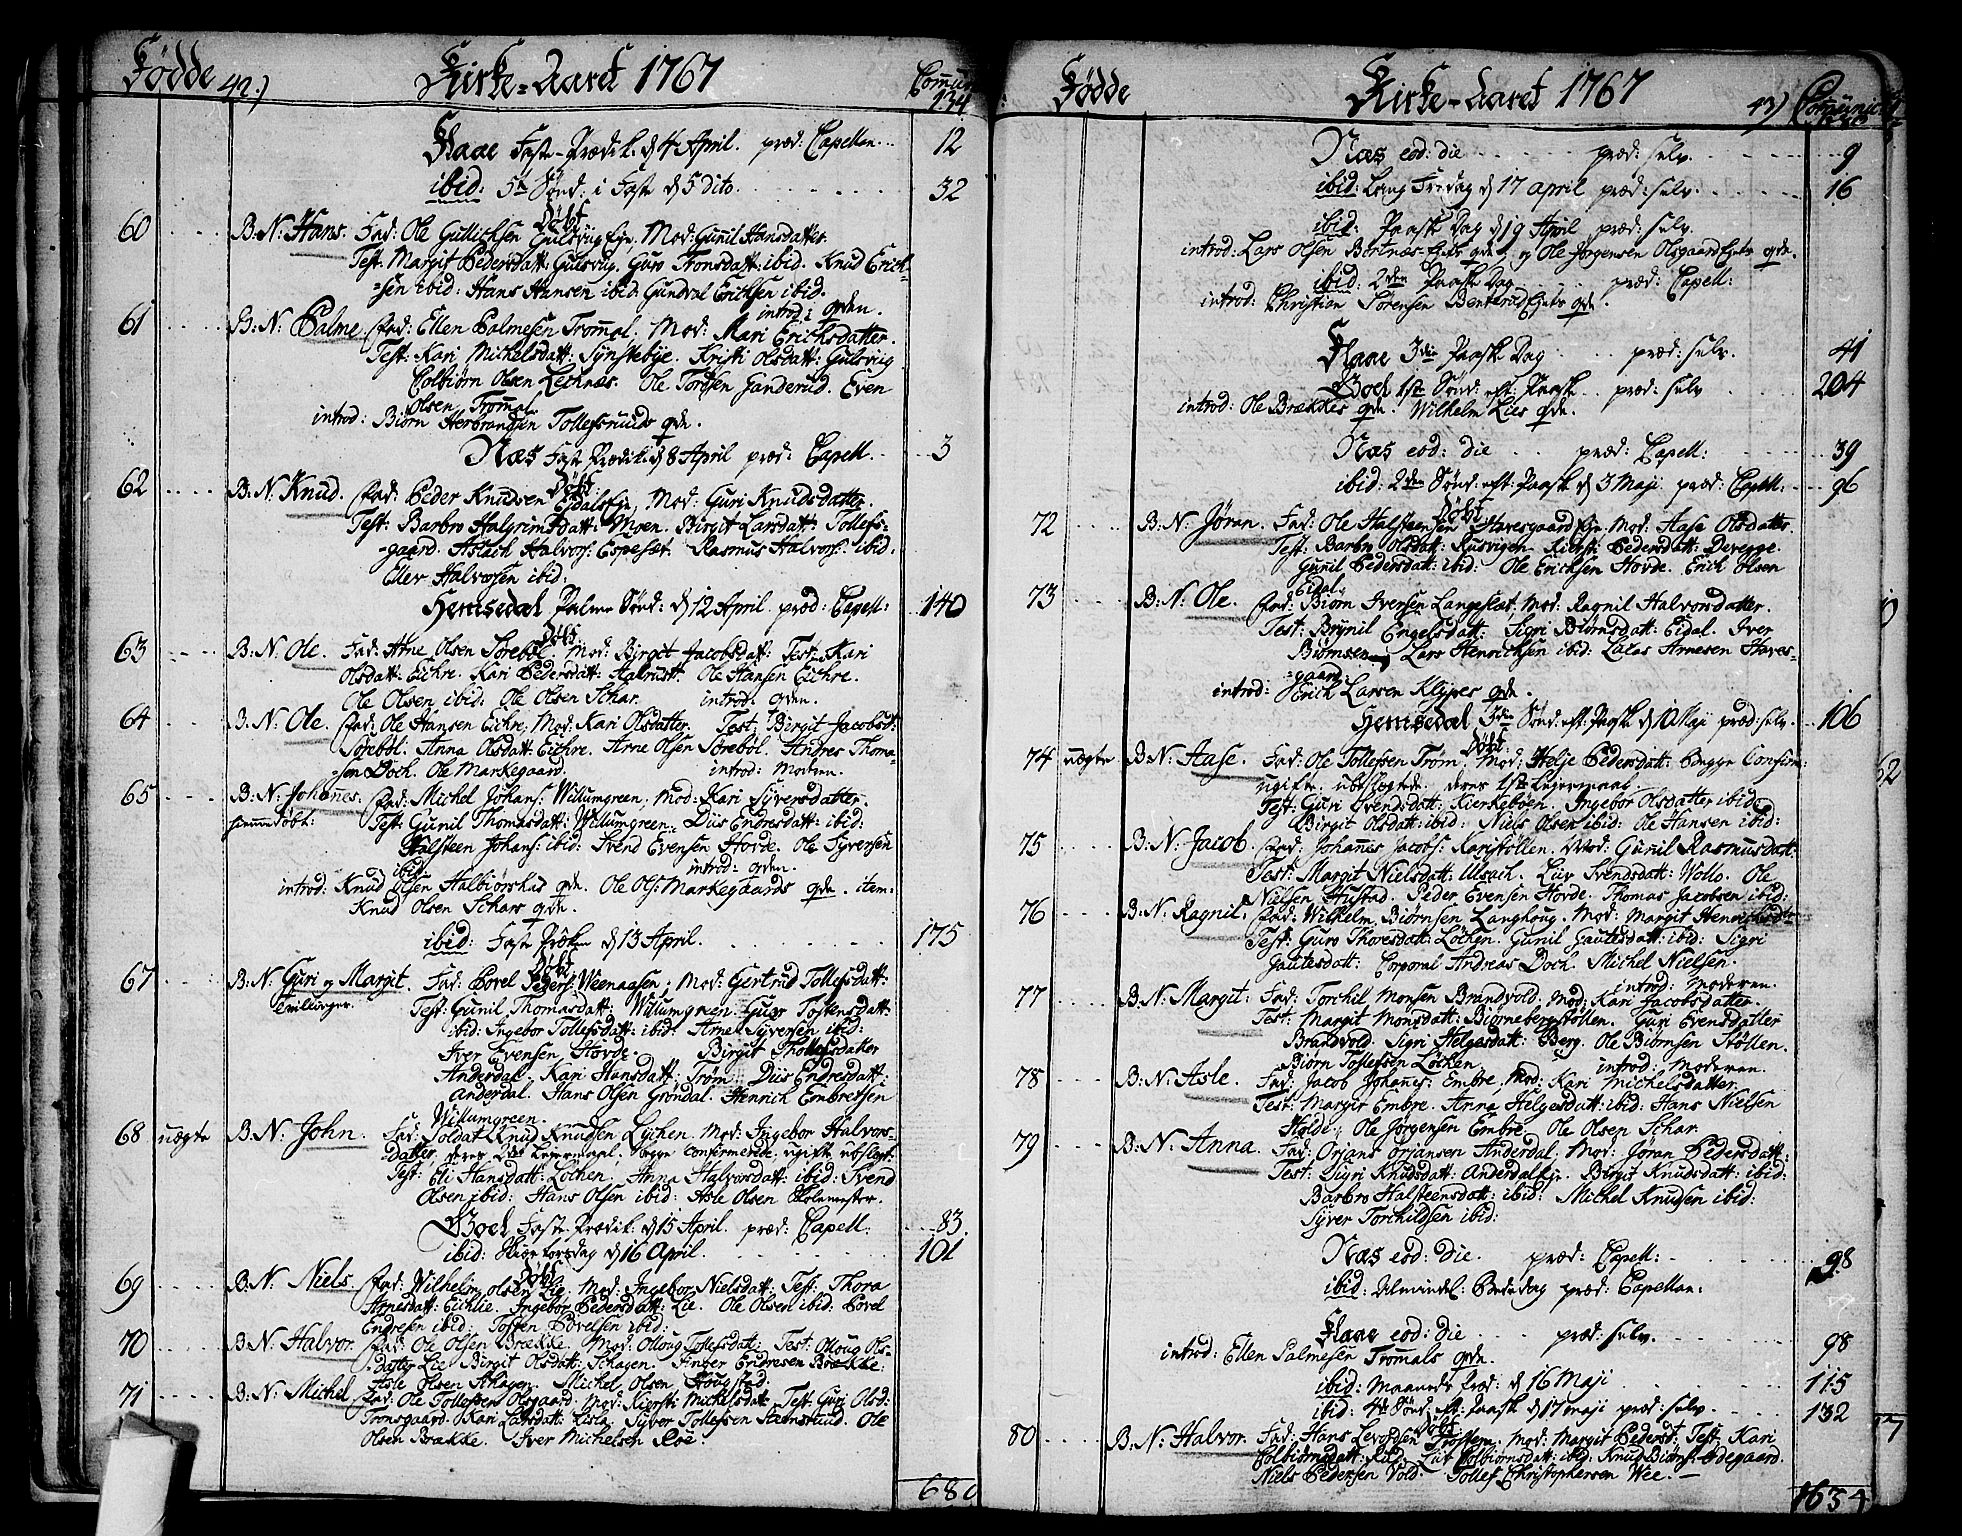 Fødde 42.) Kirke-Aaret 1767 Comun:
134
Flaae Faste-Prædik. d 4 April. præd: Capellan... 12
ibid: 5te Sønd: i Faste d 5 dito. 32
Døbt
60 B: N: Hans. Fad: Ole Gullichsen Gulsvig Eje, Mod: Gunil Hansdatter.
Test: Margit Pedersdatt: Gulsvig. Guro Tronsdatt: ibid. Knud Erich-
-sen ibid: Hans Hansen ibid: Gundval Erichsen ibid.
introd: qvden.
61 B: N: Palme. Fad: Ellen Palmesen Trommal. Mod: Kari Erichsdatter.
Test: Kari Michelsdatt: Synstebye. Kristi Olsdatt: Gulsviig
Colbiørn Olsen Lechnæs. Ole Tordsen Ganderud. Even
Olsen Trommal.
introd: Biørn Herbrandsen Tollefsruds qvde.
Næs Faste Prædik. d 8 April præd: Capell. 3
Døbt
62 B: N: Knud. Fad: Peder Knudsen Eidals Eje, Mod: Guri Knudsdatter
Test: Barbro Halgrimsdatt: Moen. Birgit Larsdatt: Tollefs-
-gaard. Aslach Halvors: Espesæt. Rasmus Halvors: ibid.
Ellev Halvorsen ibid:
Hemsedal Palme Sønd: d 12 April præd: Capell: 140
Døbt
63 B: N: Ole. Fad: Arne Olsen Sørebøl. Mod: Birgit Jacobsdatt: Test: Kari
Olsdatt: Eichre. Kari Pedersdatt: Halrustt. Ole Hansen Eichre.
Ole Olsen ibid: Ole Olsen Schar. introd: qvden.
64 B: N: Ole. Fad: Ole Hansen Eichre, Mod: Kari Olsdatter. Test: Birgit Jacobsd:
Sørebøl. Anna Olsdatt: Eichre. Arne Olsen Sørebøl. Andres Thoma-
-sen Doch. Ole Markegaard. introd: Modren.
65 B: N: Johannes. Fad: Michel Johans: Willumgreen, Mod: Kari Syversdatter.
hiemmedøbt. Test: Gunil Thomasdatt: Willumgreen. Diis Endresdatt: ibid:
Halsteen Johans: ibid: Svend Evensen Hovde. Ole Syversen
ibid. introd: qvden.
introd: Knud Olsen Halbiørshus qvde. Ole Ols: Markegaards qvde. item:
Knud Olsen Schars qvde.
ibid: Faste Prøken d 13 April. 175
Døbt
67 B: N: Guri og Margit. Fad: Povel Peders: Weenaasen; Mod: Gertrud Tollefsdatt:
Tvillinger. Test: Gunil Thomasdatt: Willumgreen. Guro Tostensdatt:
ibid: Ingebor Tollefsdatt: ibid: Arne Syversen ibid:
Iver Evensen Hovde. Birgit Thollefsdatter
Anderdal. Kari Hansdatt: Trøm. Diis Endresdatt:
Anderdal. Hans Olsen Grøndal. Henrich Embretsen
Willumgreen.
68 uægte B: N: John. Fad: Soldat Knud Knudsen Lychen. Mod: Ingebor Halvors-
datter, deres 1ste Lejermaal. begge confirmerede, ugifte ubslegt:
Test: Eli Hansdatt: Løchen. Anna Halvorsdatt: ibid: Svend
Olsen ibid: Hans Olsen ibid: Asle Olsen Skolemester.
Goel Faste-Prædik. d 15 April. præd: Capell. 83
ibid: Skiærtorsdag d 16 April. 101
Døbt
69 B: N: Niels. Fad: Wilhelm Olsen Lie. Mod: Ingebor Nielsdatt: Test: Thora
Arnesdatt: Eichlie. Ingebor Pedersdatt: Lie. Ole Olsen ibid: Povel
Endresen ibid: Tosten Povelsen ibid:
70 B: N: Halvor. Fad: Ole Olsen Brække. Mod: Olloug Tollefsdatt: Test: Olloug Ols-
datter Lie Birgit Olsdatt: Schagen. Finger Endresen Brække:
Asle Olsen Schagen. Michel Olsen Hougstad:
71 B: N: Michel. Fad: Ole Tollefsen Olsgaard. Mod: Kiersti Michelsdatt: Test: Guri Olsd:
Tronsgaard. Kari Larsdatt: Lisla. Syver Tollefsen Hæmsrud. Ole
Olsen Brække. Iver Michelsen Roe.
680
Fødde Kirke-Aaret 1767 43) Comunic:
Næs eod: die præd: selv. 9
ibid: Lang Fredag d 17 april præd: selv. 16
ibid: Paaske Dag d 19 April præd: selv.
introd: Lars Olsen Børtnæs-Ejets qvde, og Ole Jørgensen Olsgaard Ejets qvde.
ibid: 2den Paaske Dag præd: Capell:
introd: Christian Sørensen Benterud Ejets qvde.
Flaae 3die Paaske Dag præd: selv. 41
Goel 1ste Sønd: eft: Paaske præd: selv 204
introd: Ole Brækkes qvde. Wilhelm Lies qvde.
Næs eod: die præd: Capell: 39
ibid: 2den Sønd: eft: Paaske d 3 Maji præd: Capell: 96
Døbt
72 B: N: Jøran. Fad: Ole Halsteensen Haresgaard Eje. Mod: Aase Olsdatter.
Test: Barbro Olsdatt: Rusvigen. Kiersti Pedersdatt: Deregge.
Gunil Pedersdatt: ibid: Ole Erichsen Hovde. Erich Olsen
Eidal.
73 B: N: Ole. Fad: Biørn Iversen Langeslet, Mod: Ragnil Halvorsdatter.
Test: Brynil Engelsdatt: Sigri Biørnsdatt: Eidal. Iver
Biørnsen Lars Henrichsen ibid: Lucas Arnesen Hares-
-gaard.
introd: Erich Larsen Klypes qvde.
Hemsedal 3die Sønd: eft: Paaske d 10 Maji præd: selv. 106
Døbt
74 uægte B: N: Aase. Fad: Ole Tollefsen Trøm. Mod: Helje Pedersdatt: begge Confirm:
ugifte. ubeslægtede. deres 1ste Lejermaal.
Test: Guri Svendsdatt: Kierkebøen. Ingebor Olsdatter ibid:
Birgit Olsdatt: ibid: Niels Olsen ibid: Ole Hansen ibid:
75 B: N: Jacob. Fad: Johannis Jacobs: Karistøllen. Mod: Gunil Rasmusdatt:
Test: Margit Nielsdatt: Ulsach. Liv Svendsdatt: Wollo. Ole
Nielsen Hustad. Peder Evensen Hovde. Thomas Jacobsen ibid:
76 B: N: Ragnil. Fad: Wilhelm Biørnsen Langhoug. Mod: Margit Henrichsdatt:
Test: Guro Thoresdatt: Løchen. Gunil Gautesdatt: ibid: Sigri
Gautesdatt: Corporal Andreas Doch. Michel Nielsen.
introd: Moderen.
77 B: N: Margit: Fad: Torchil Monsen Brandvold. Mod: Kari Jacobsdatter.
Test: Margit Monsdatt: Biørnebergstøllen. Guri Evensdatter
Brandvold. Sigri Helgesdatt: Berg. Ole Biørnsen Støllen.
Biørn Tollefsen Løchen. introd: Moderen.
78 B: N: Asle. Fad: Jacob Johannis: Embre, Mod: Kari Michelsdatter.
Test: Margit Embre. Anna Helgesdatt: ibid: Hans Nielsen
Holde. Ole Jørgensen Embre. Ole Olsen Schar.
79 B: N: Anna. Fad: Ørjans Ørjansen Anderdal. Mod: Jøran Pedersdatt:
Test: Sigri Knudsdatt: Anderdal Eje. Birgit Knudsdatt: ibid:
Barbro Halsteensdatt: ibid: Michel Knudsen ibid:
Syver Torchildsen ibid:
Næs eod: die. præd: Capell: 98
ibid: Almindel: Bededag præd: Capellan:
Flaae eod: die præd: selv. 98
introd: Ellen Palmesen Trommals qvde.
ibid: Maaneds Præd: d 16 Maji 115
ibid: 4de Sønd: eft: Paaske d 17 maji præd: selv. 132
Døbt
80 B: N: Halvor. Fad: Hans Levordsen Trostem. Mod: Margit Pederst: Test: Kari
Colbiørnsdatt: Rud. Liv Colbiørnsdatt: ibid: Knud Biørns: Ødegaard.
Niels Pedersen Vold. Tollef Christophersen Wee. —
1654